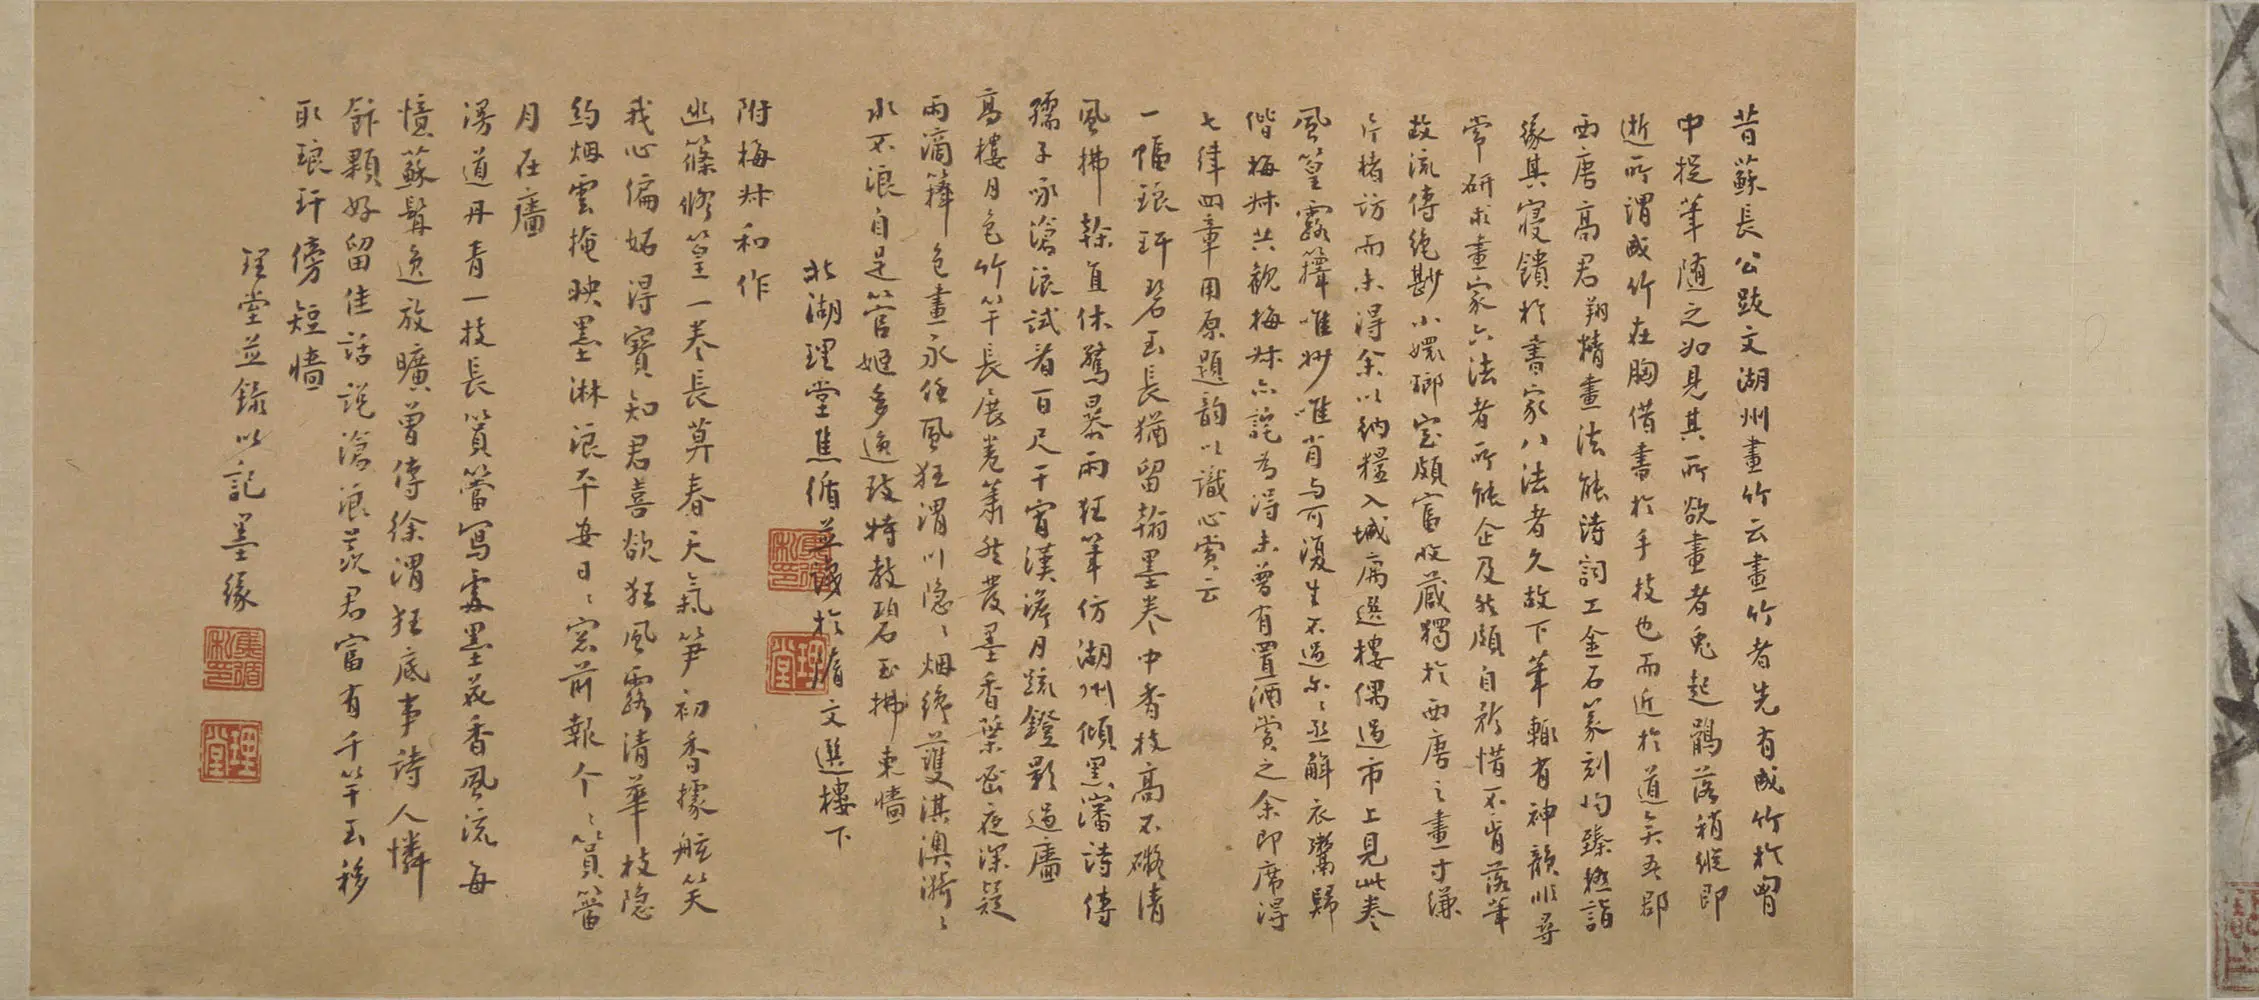 昔蘇長公跋文湖州畫竹云畫竹者先有成竹於胸
中捉筆隨之如見其所欲畫者兎起鶻落稍縱即
逝所謂成竹在胸借書於手技也而近於道矣吾郡
西唐高君翔精畫法能詩詞工金石篆刻均臻極詣
緣其寢饋於書家八法者久故下筆輒有神韻非尋
常研求畫家六法者所能企及然頗自矜惜不肯落筆
故流傳絕尠小嫏嬛室頗富收藏獨於西唐之畫寸縑
片楮訪而未得余以納糧入城寓選樓偶過市上見此卷
風篁露籜唯妙唯肖与可復生不過爾爾亟解衣鬻歸
偕梅叔共觀梅叔亦詫為得未曾有置酒賞之余即席得
七律四章用原題韵以識心賞云
一幅琅玕碧玉長猶留翰墨卷中香枝高不礙清
風拂榦直休驚暴雨狂筆仿湖州傾黑瀋詩傳
孺子咏滄浪試看百尺干霄漢澹月疏鐙影過廧
高樓月色竹竿長展卷蕭然發墨香葉密夜深疑
雨滴籜色晝永任風狂渭川隐隐烟纔護淇澳漪漪
水不浪自是管姬多逸致特教碧玉拂東墻
北湖理堂焦循並識於隋文選樓下
附梅叔和作
幽篠修篁一卷長算春天氣笋初香據舷笑
我心偏妬得寶知君喜欲狂風露清華枝隐
約烟雲掩映墨淋浪平安日日窓前報个个篔簹
月在廧
漫道丹青一技長篔簹寫處墨花香風流每
憶蘇髯逸放曠曾傳徐渭狂底事詩人憐
餘顆好留佳話說滄浪羨君富有千竿玉移
取琅玕傍短墻
理堂並錄以記墨緣
焦循私印
理堂
焦循私印
理堂